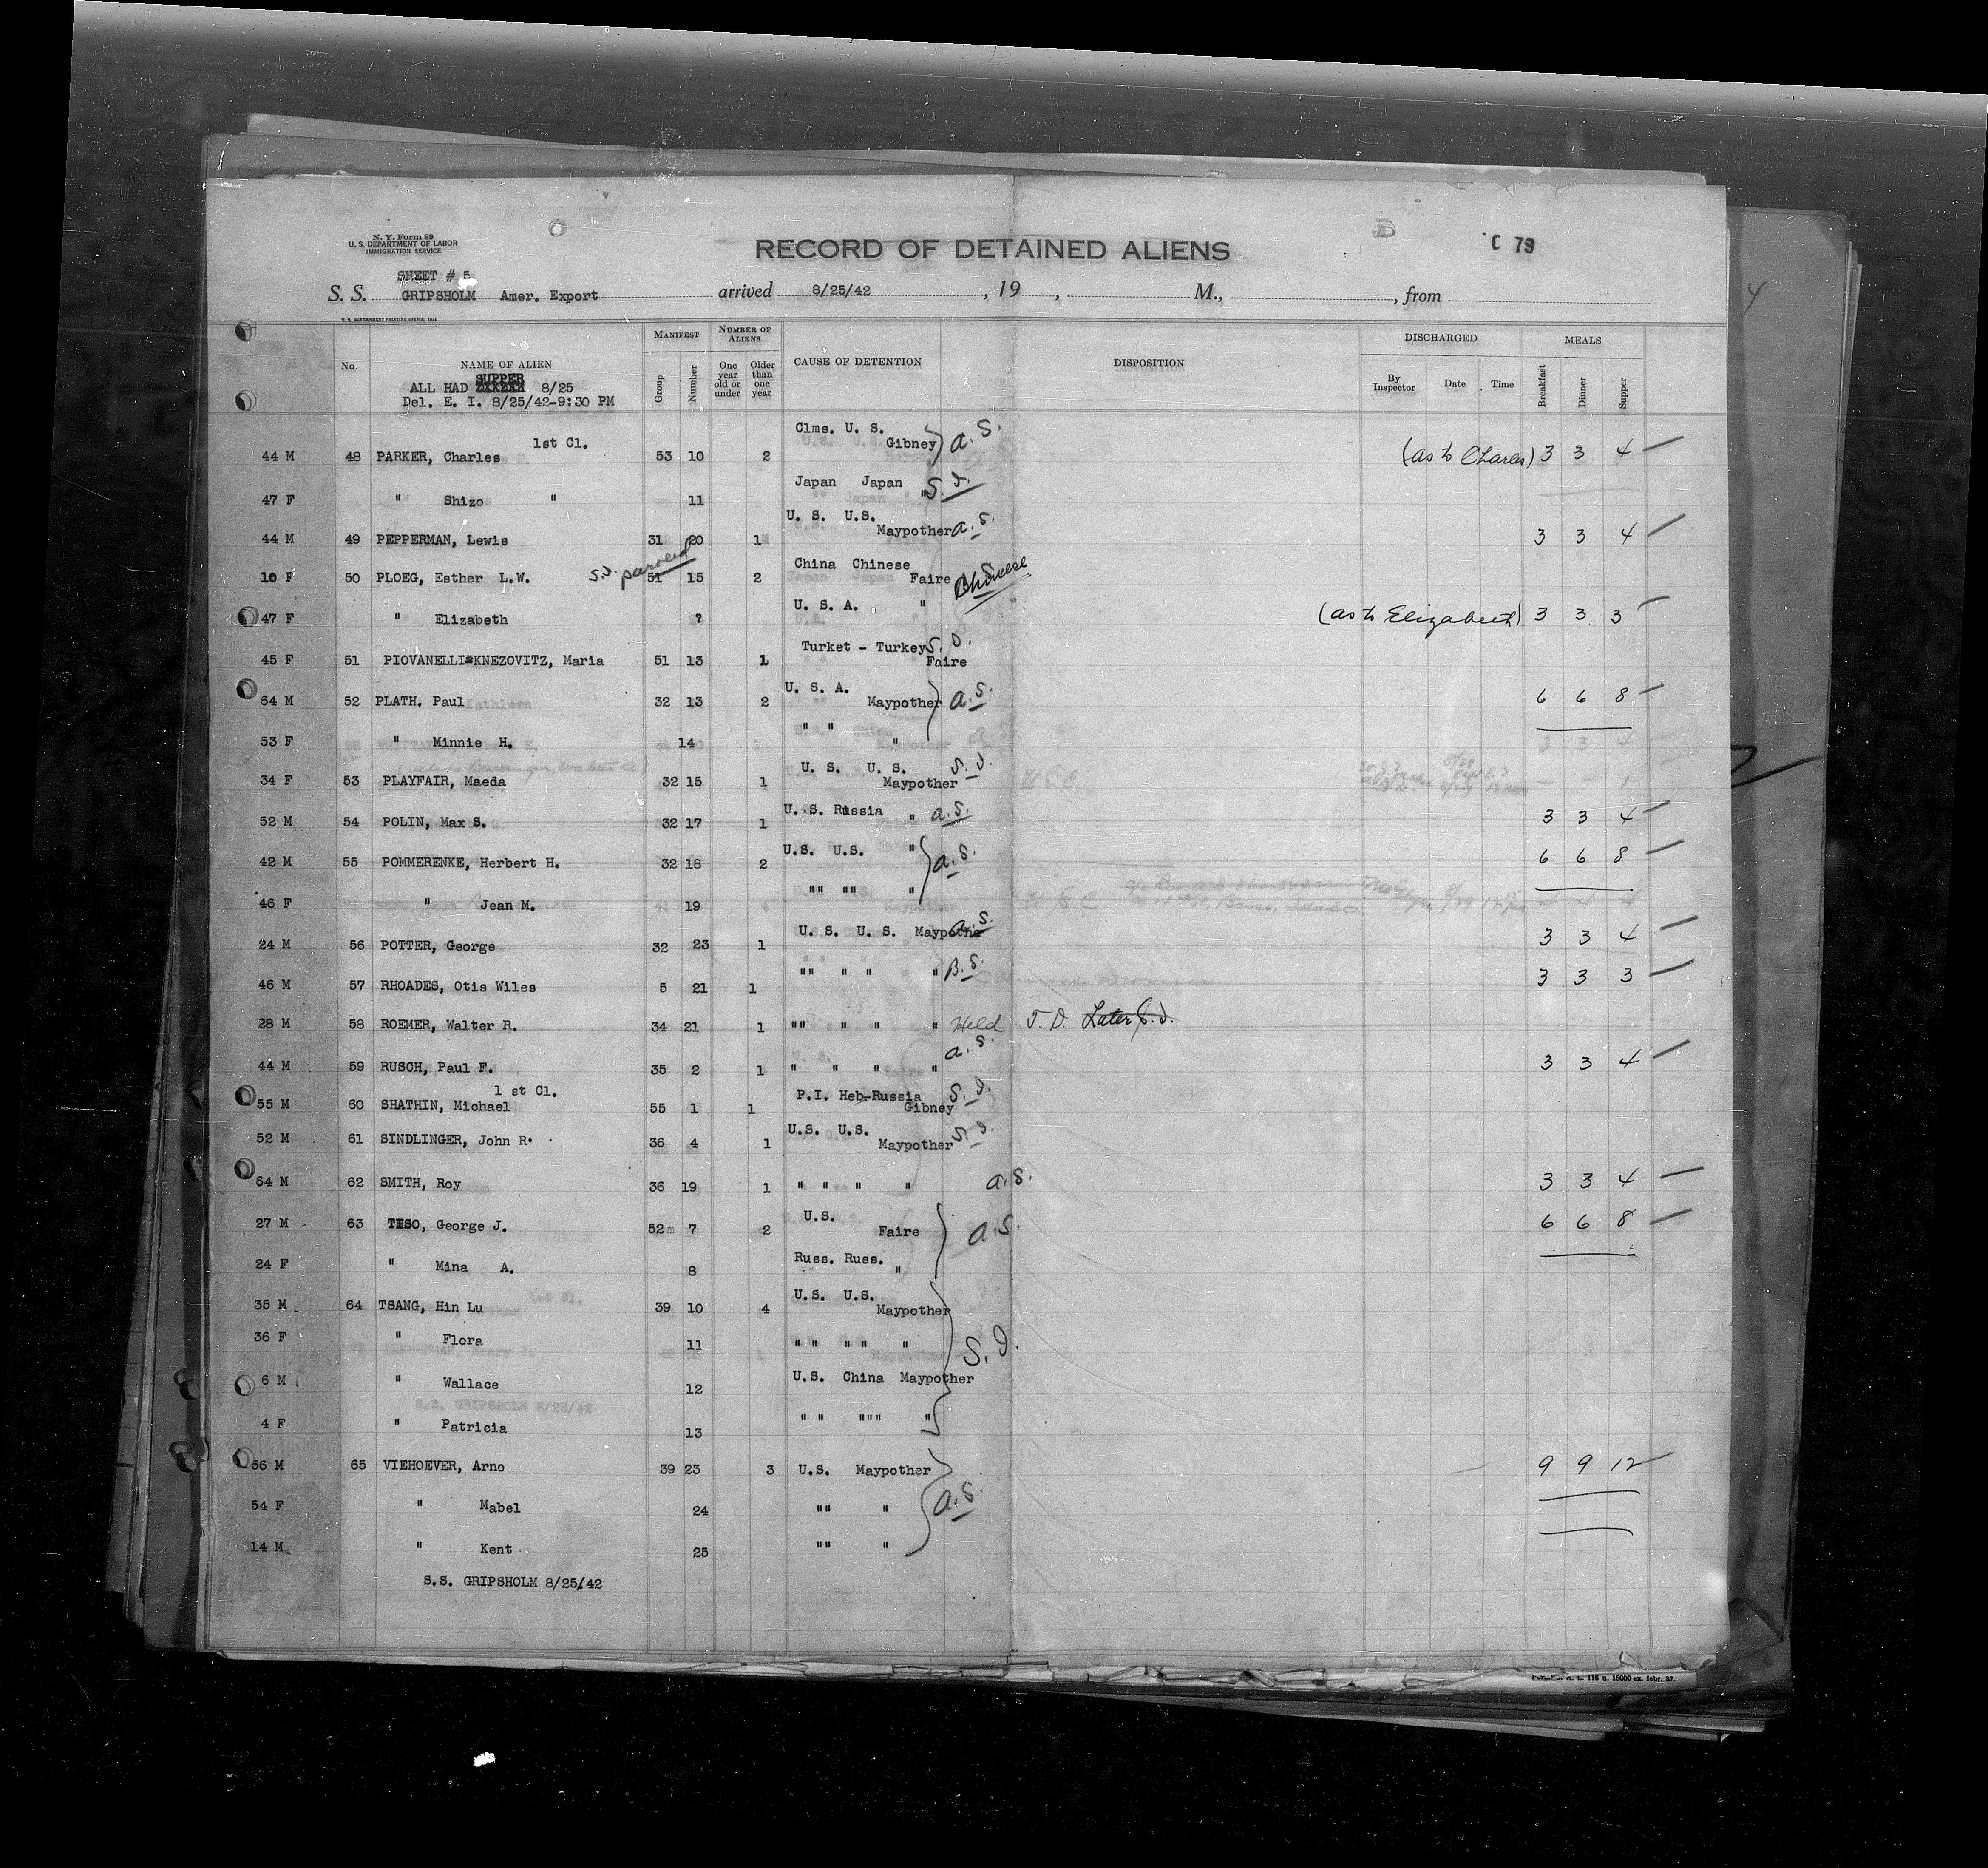 N. Y. Form 89
U. S. DEPARTMENT OF LABOR
IMMIGRATION SERVICE
RECORD OF DETAINED ALIENS
C 79
SHEET # 5
S. S. GRIPSHOLM Amer. Export arrived 8/25/42 , 19 , M., , from
U. S. GOVERNMENT PRINTING OFFICE
No. NAME OF ALIEN MANIFEST Group Number NUMBER OF ALIENS One year old or under Older than one year CAUSE OF DETENTION DISPOSITION DISCHARGED By Inspector Date Time MEALS Breakfast Dinner Supper
SUPPER
ALL HAD 8/25
Del. E. I. 8/25/42-9:30 PM
44 M 48 PARKER, Charles 1st Cl. 53 10 2 Clms. U. S. Gibney a.S. (as to Charles) 3 3 4 —
47 F " Shizo " 11 Japan Japan " S.I.
44 M 49 PEPPERMAN, Lewis 31 20 1 U. S. U.S. Maypother a.S. 3 3 4 —
10 F 50 PLOEG, Esther L.W. S.I. paroled 51 15 2 China Chinese Faire
47 F " Elizabeth ? U. S. A. " (as to Elizabeth) 3 3 3 —
45 F 51 PIOVANELLI*KNEZOVITZ, Maria 51 13 1 Turket - Turkey Faire S.I.
64 M 52 PLATH. Paul 32 13 2 U. S. A. Maypother a.S. 6 6 8 —
53 F " Minnie H. 14 " " "
34 F 53 PLAYFAIR, Maeda 32 15 1 U. S. U. S. Maypother S.I.
52 M 54 POLIN, Max S. 32 17 1 U. S. Russia " a.S. 3 3 4 —
42 M 55 POMMERENKE, Herbert H. 32 18 2 U.S. U.S. " a.S. 6 6 8 —
46 F " Jean M. 19 "" "" "
24 M 56 POTTER, George 32 23 1 U. S. U. S. Maypothe a.S. 3 3 4 —
46 M 57 RHOADES, Otis Wiles 5 21 1 "" " " " B.S. 3 3 3 —
28 M 58 ROEMER, Walter R. 34 21 1 "" " " " Held T. D. Later S.I.
44 M 59 RUSCH, Paul F. 35 2 1 " " " " a.S. 3 3 4 —
55 M 60 SHATHIN, Michael 1 st Cl. 55 1 1 P.I. Heb-Russia Gibney S.I.
52 M 61 SINDLINGER, John R. 36 4 1 U.S. U.S. Maypother S.I.
64 M 62 SMITH, Roy 36 19 1 " " " " a.S. 3 3 4 —
27 M 63 TESO, George J. 52 7 2 U.S. Faire a.S. 6 6 8 —
24 F " Mina A. 8 Russ. Russ. "
35 M 64 TSANG, Hin Lu 39 10 4 U.S. U.S. Maypother S.I.
36 F " Flora 11 " " " " "
6 M " Wallace 12 U.S. China Maypother
4 F " Patricia 13 " " """ "
56 M 65 VIEHOEVER, Arno 39 23 3 U.S. Maypother a.S. 9 9 12 —
54 F " Mabel 24 "" "
14 M " Kent 25 "" "
S.S. GRIPSHOLM 8/25/42
116 n. 15000 ex. febr. 37.